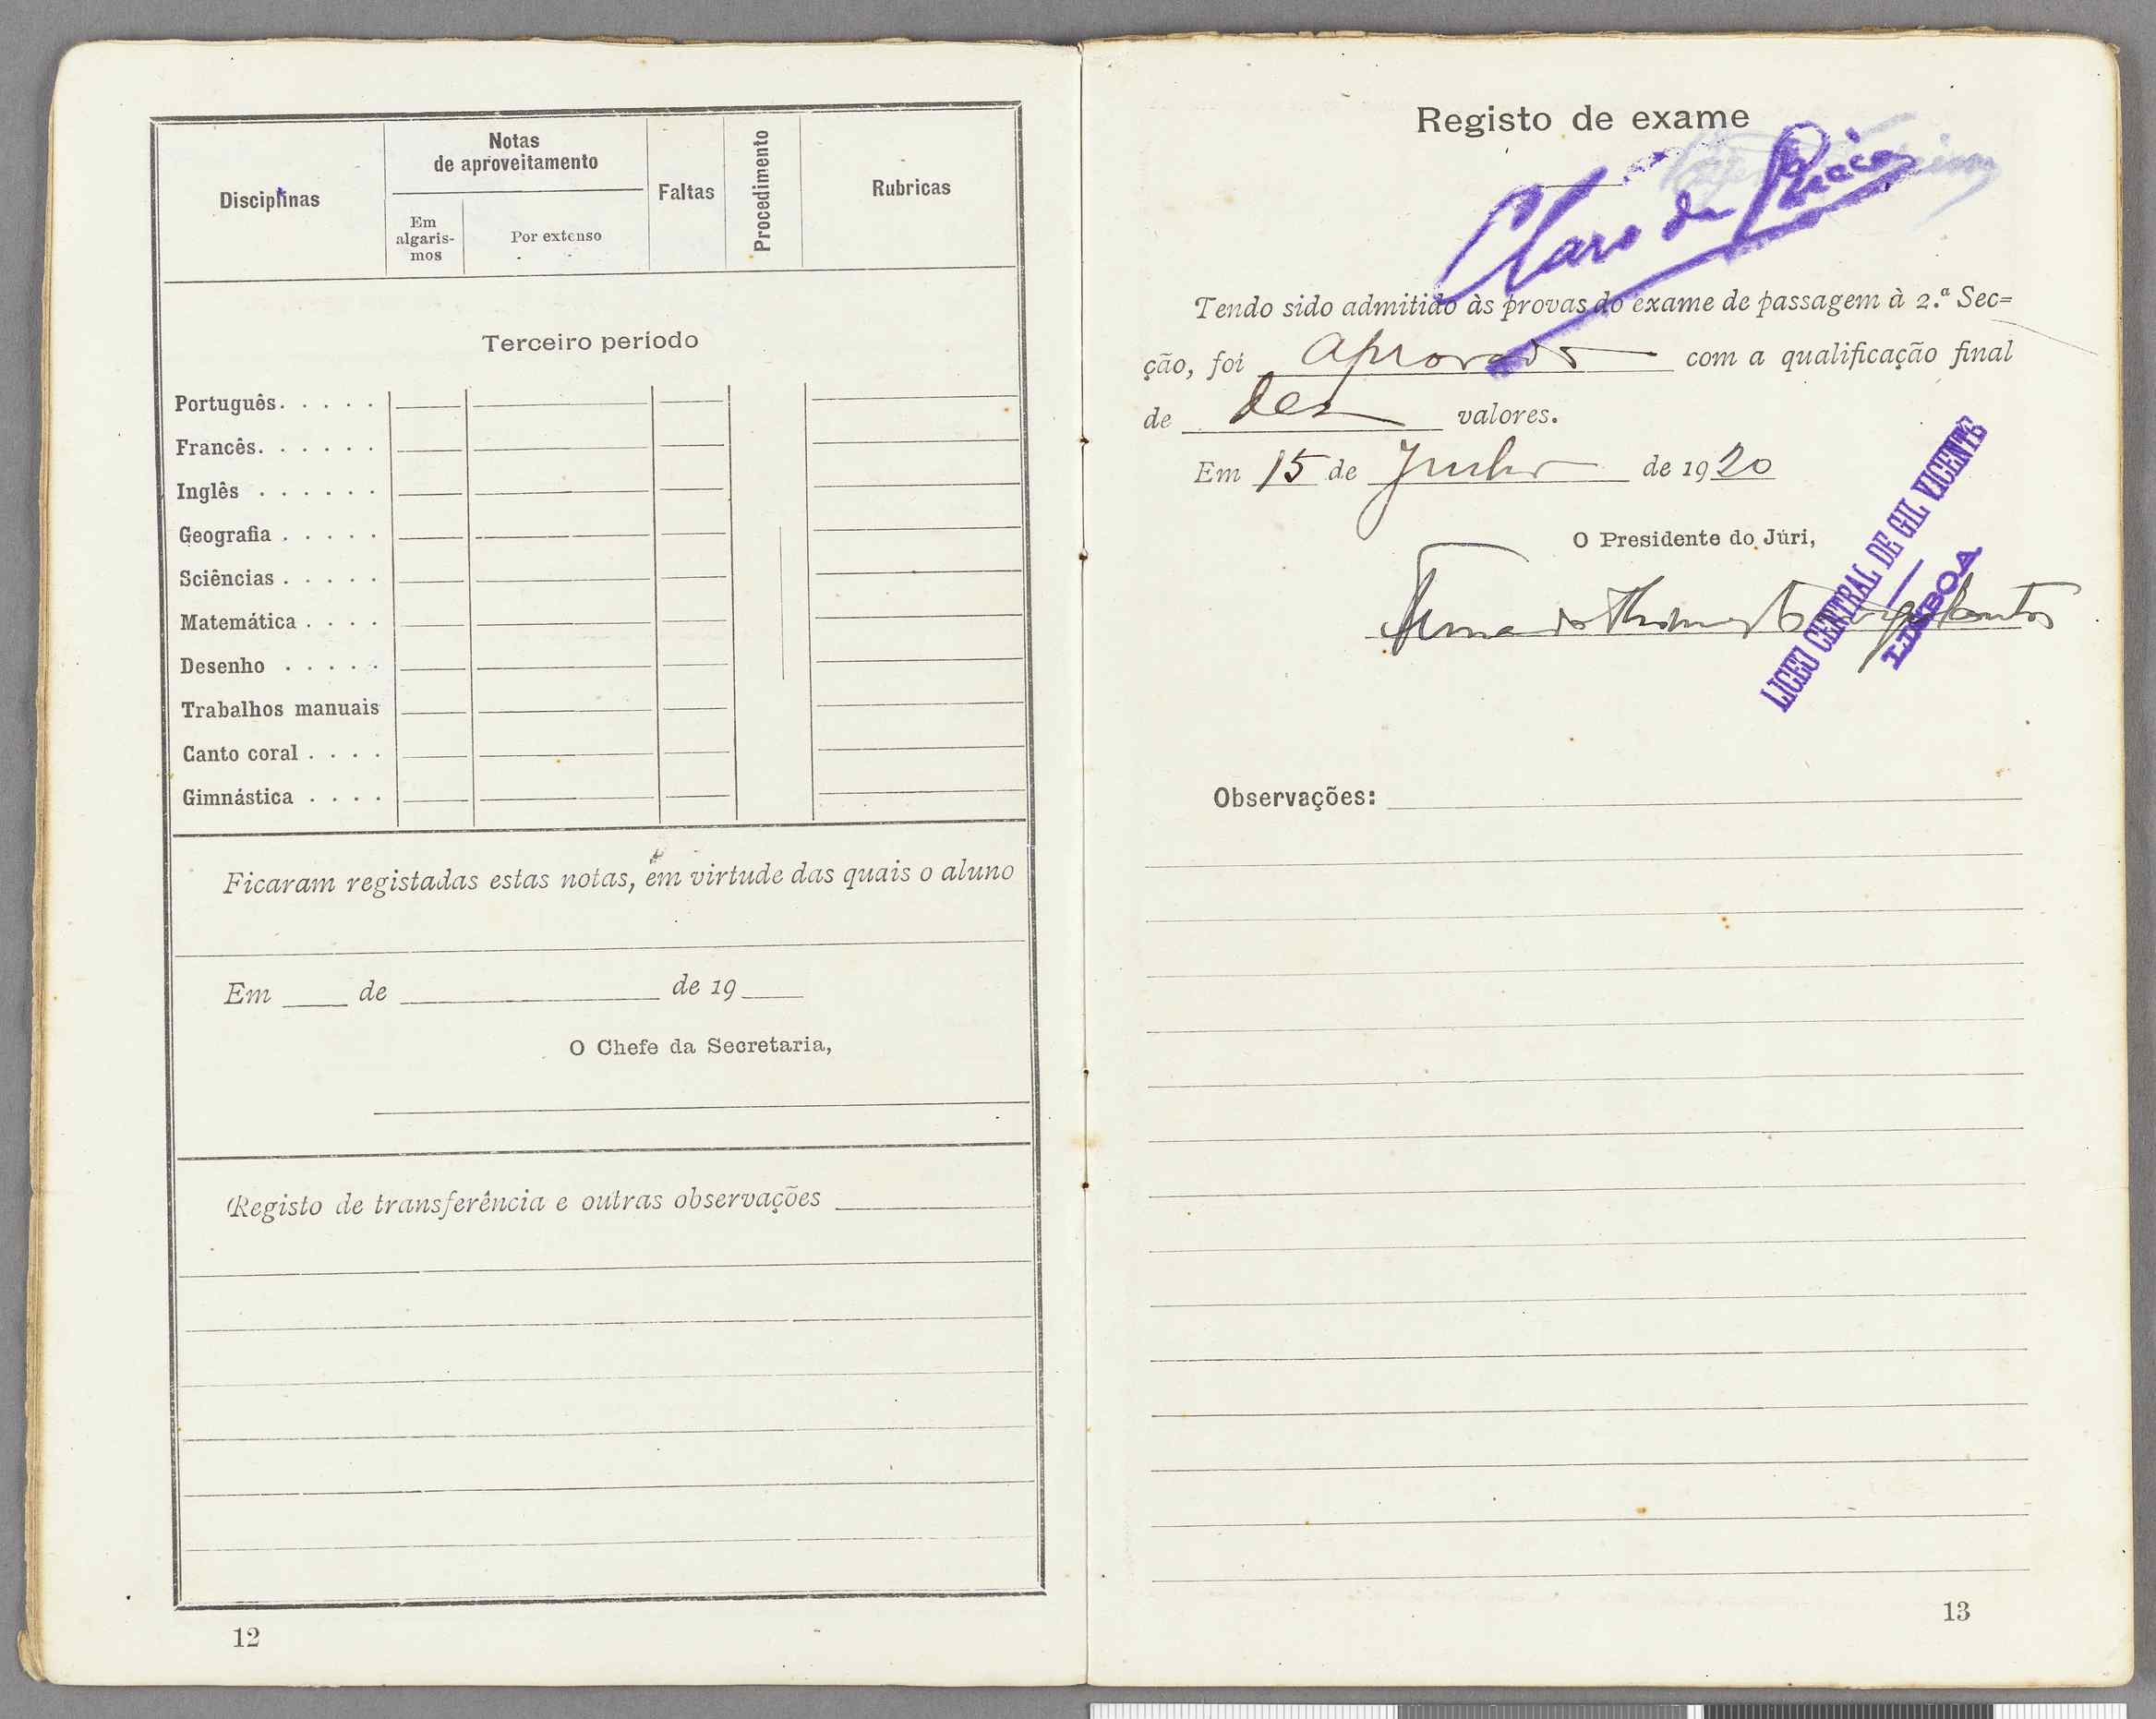 Disciplinas
Notas
de aproveitamento
Em
algaris-
mos
Por extenso
Faltas
Procedimento
Rubricas
Terceiro período
Português. . . . .
Francês. . . . . .
Inglês . . . . . .
Geografia . . . . .
Sciências . . . . .
Matemática . . . .
Desenho . . . . .
Trabalhos manuais
Canto coral . . . .
Gimnástica . . . .
Ficaram registadas estas notas, em virtude das quais o aluno
Em ____ de ____ de 19 ____
O Chefe da Secretaria,
Registo de transferência e outras observações
12
Registo de exame
Claro da
Tendo sido admitido às provas do exame de passagem à 2.ª Sec=
ção, foi aprovado com a qualificação final
de dez valores.
Em 15 de Julho de 1920
O Presidente do Júri,
LICEU CENTRAL DE GIL VICENTE
LISBOA
Observações:
13